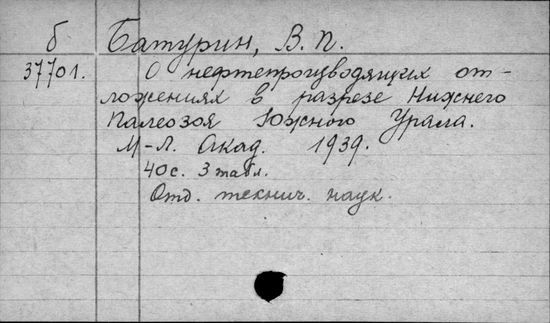 б Батурин, В. П.
37701. О нефтепроизводящих от-
ложениях в разрезе Нижнего
Палеозоя Южного Урала.
М-Л. Акад. 1939.
40 с. 3 табл.
Отд. технич. наук.